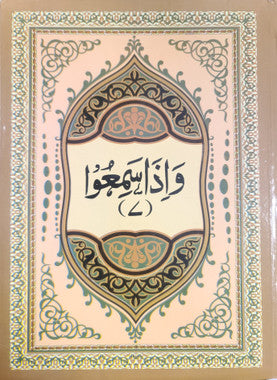 وَإِذَا سَمِعُوا
(٧)